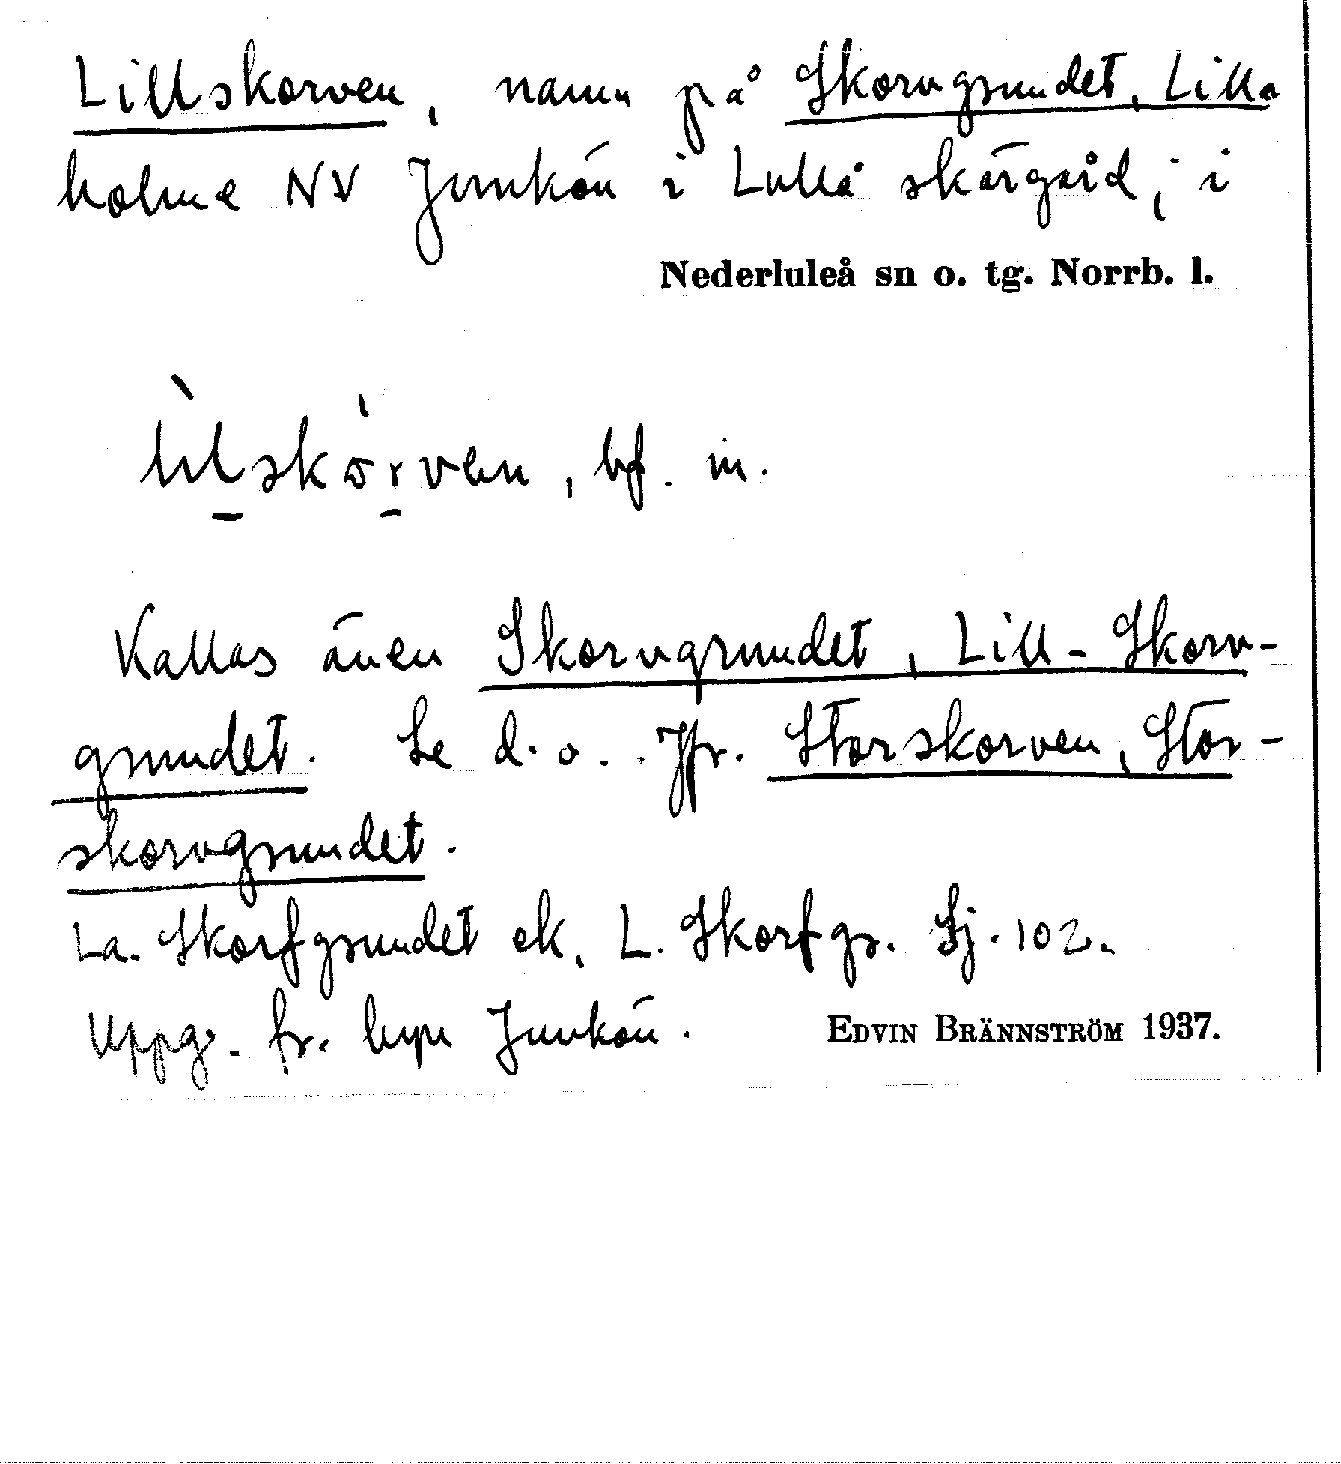 Lillskorven, namn på Skorvgrundet, Lilla
holme NV Junkön i Luleå skärgård, i
Nederluleå sn o. tg. Norrb. l.
lìlskö́rven, bf. m.
Kallas även Skorvgrundet, Lill-Skorv-
grundet. Se d. o. Jfr. Storskorven, Stor-
skorvgrundet.
La. Skorfgrundet ek, L. Skorfgr. Sj. 102.
Uppg. fr. byn Junkön.
EDVIN BRÄNNSTRÖM 1937.